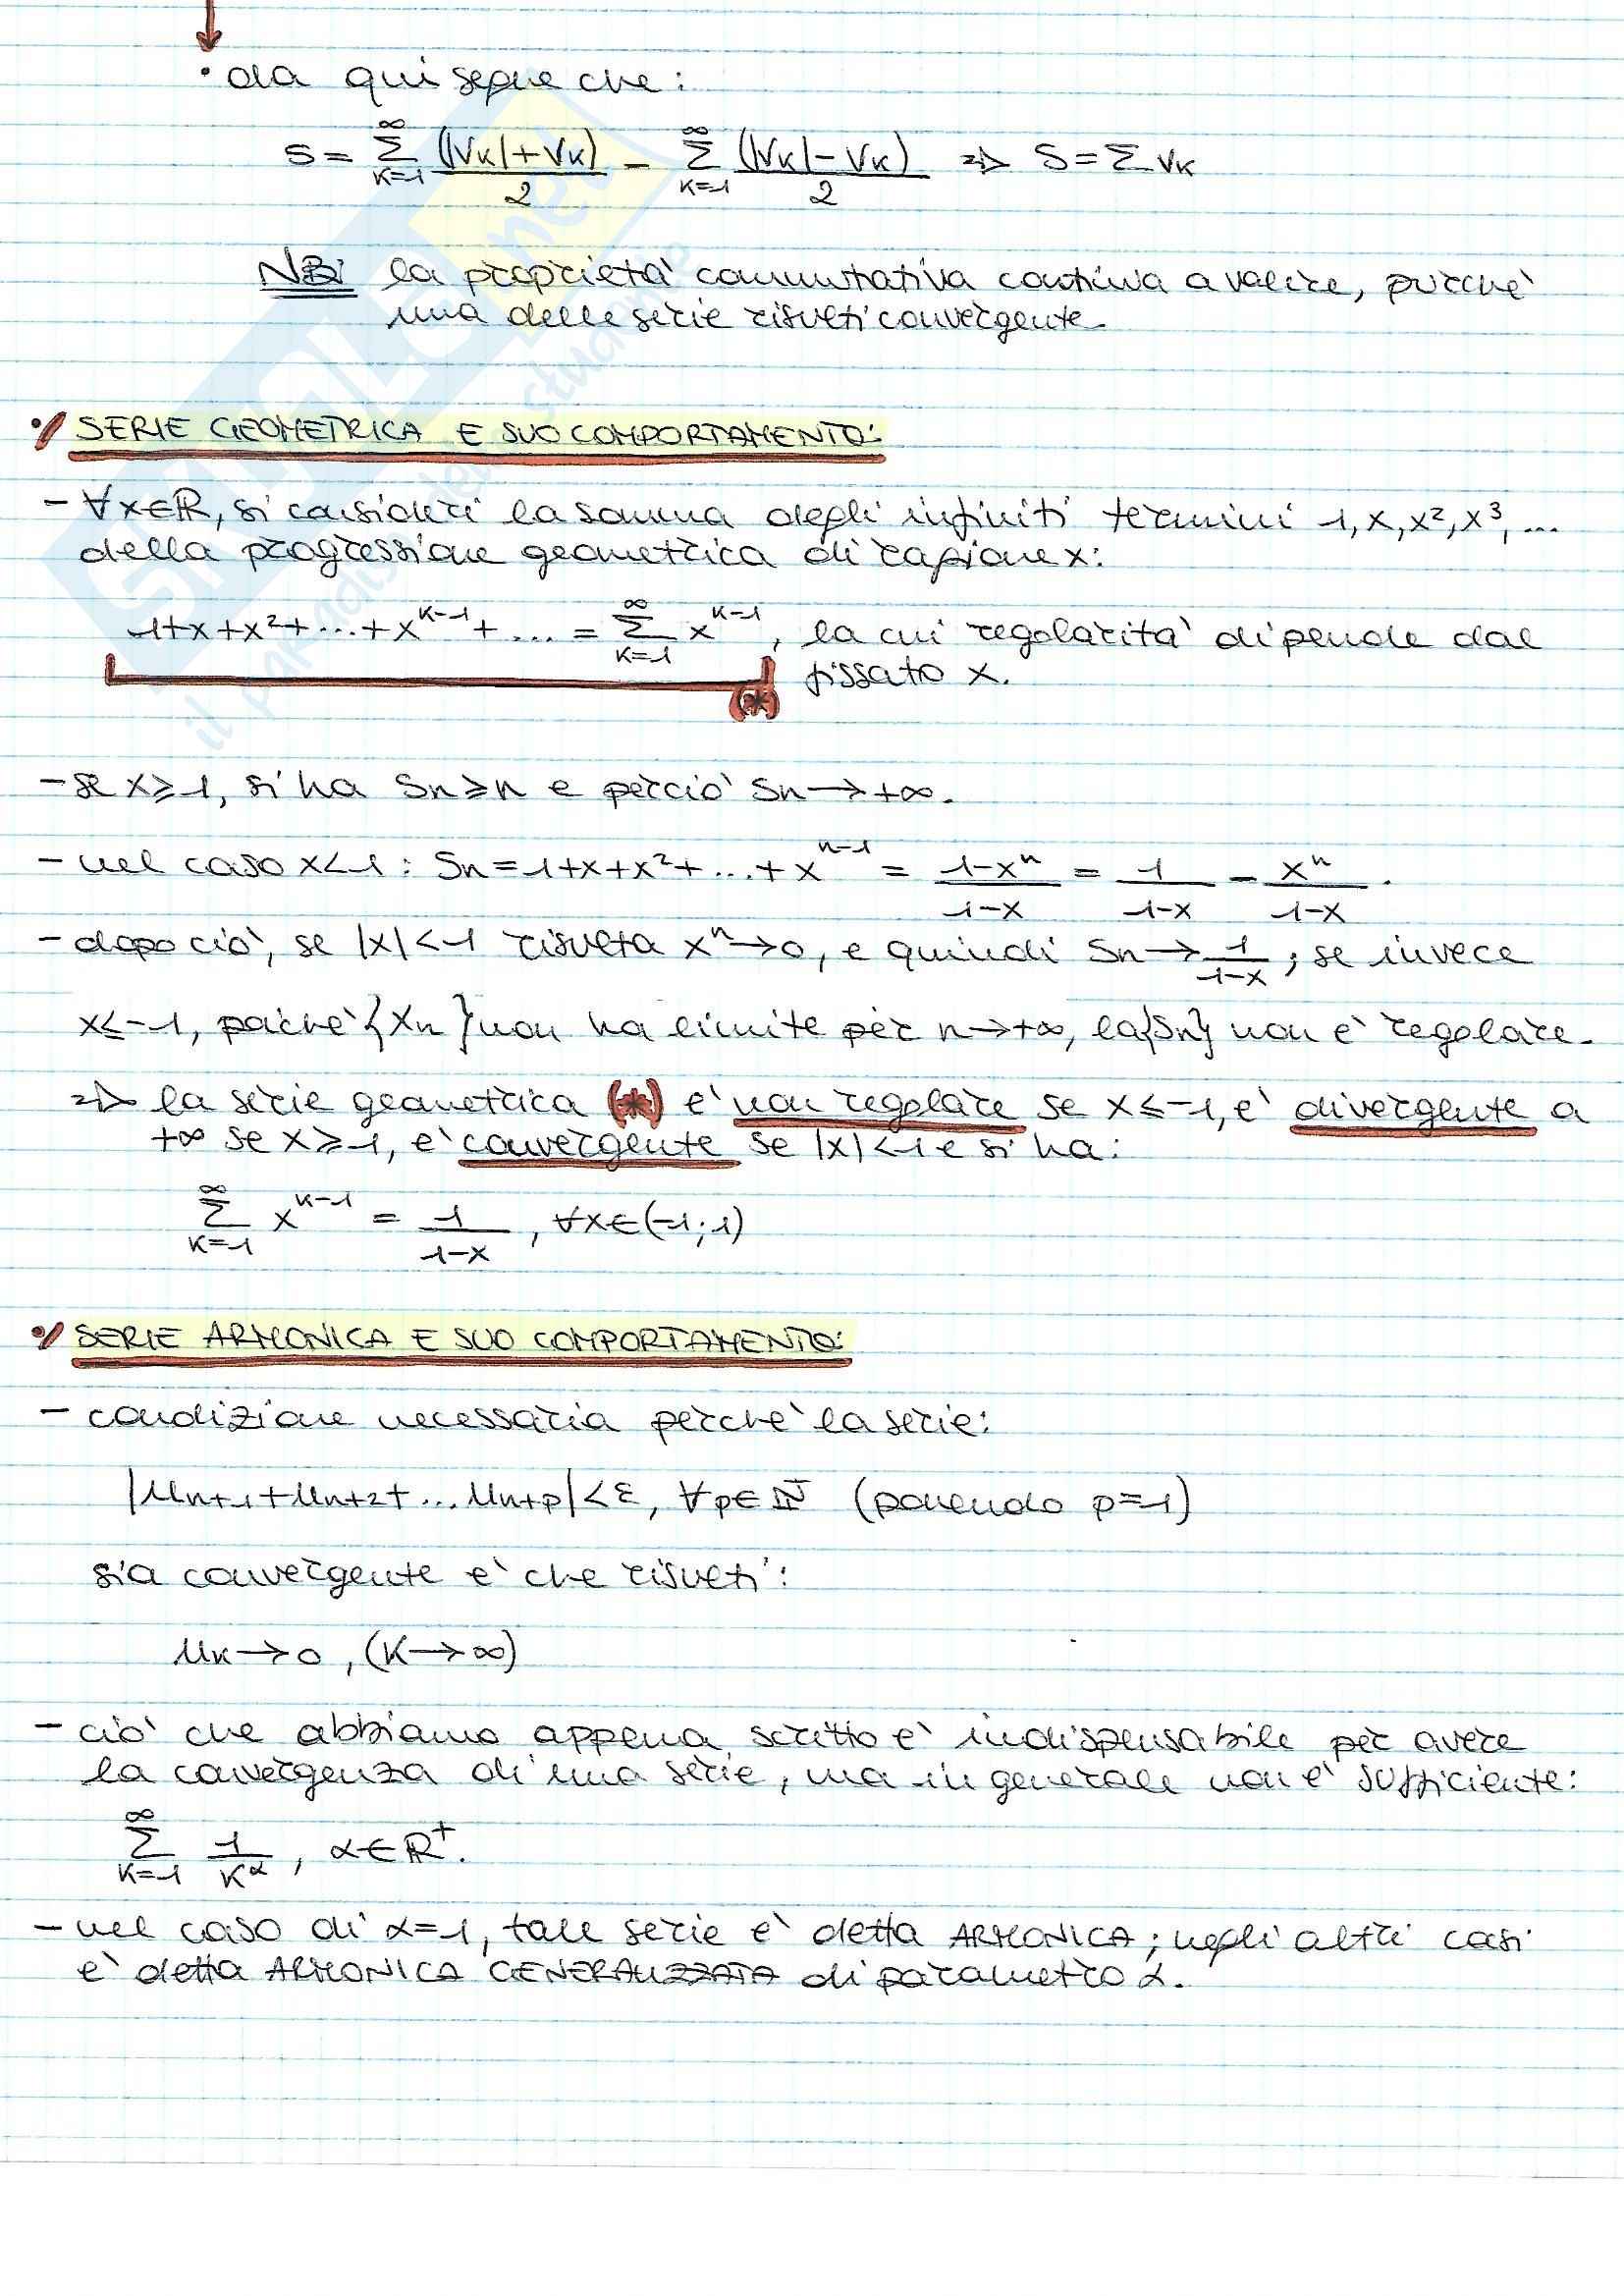 • da qui segue che:
S = ∑_{K=1}^{∞} (|VK|+VK)/2 - ∑_{K=1}^{∞} (|VK|-VK)/2 => S = ∑ VK
NB: la proprietà commutativa continua a valere, purchè
una delle serie risulti convergente.
•/ SERIE GEOMETRICA E SUO COMPORTAMENTO:
- ∀x∈ℝ, si consideri la somma degli infiniti termini 1, x, x², x³, ...
della progressione geometrica di ragione x:
1+x+x²+...+x^{K-1}+... = ∑_{K=1}^{∞} x^{K-1}, la cui regolarità dipende dal
fissato x.
(*)
- se x≥1, si ha Sn≥n e perciò Sn→+∞.
- nel caso x<1: Sn=1+x+x²+...+x^{n-1} = (1-x^n)/(1-x) = 1/(1-x) - x^n/(1-x).
- dopo ciò, se |x|<1 risulta x^n→0, e quindi Sn→1/(1-x); se invece
x≤-1, poichè {Xn} non ha limite per n→+∞, la {Sn} non è regolare.
=> la serie geometrica (*) è non regolare se x≤-1, è divergente a
+∞ se x≥1, è convergente se |x|<1 e si ha:
∑_{K=1}^{∞} x^{K-1} = 1/(1-x), ∀x∈(-1;1)
•/ SERIE ARMONICA E SUO COMPORTAMENTO:
- condizione necessaria perchè la serie:
|un+1+un+2+...un+p|<ε, ∀p∈ℕ (ponendo p=1)
sia convergente è che risulti:
uK→0, (K→∞)
- ciò che abbiamo appena scritto è indispensabile per avere
la convergenza di una serie, ma in generale non è sufficiente:
∑_{K=1}^{∞} 1/K^α, α∈ℝ⁺.
- nel caso di α=1, tale serie è detta ARMONICA; negli altri casi
è detta ARMONICA GENERALIZZATA di parametro α.